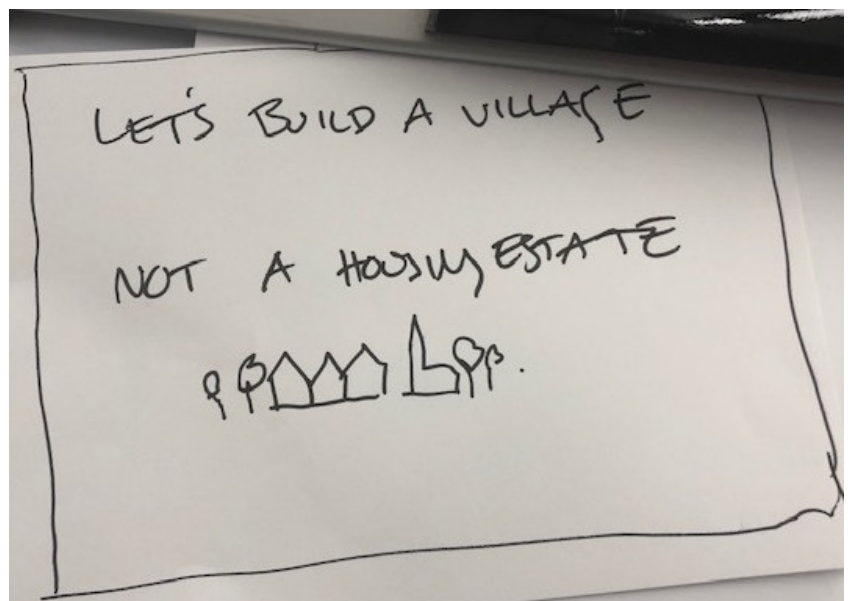 LET'S BUILD A VILLAGE
NOT A HOUSING ESTATE